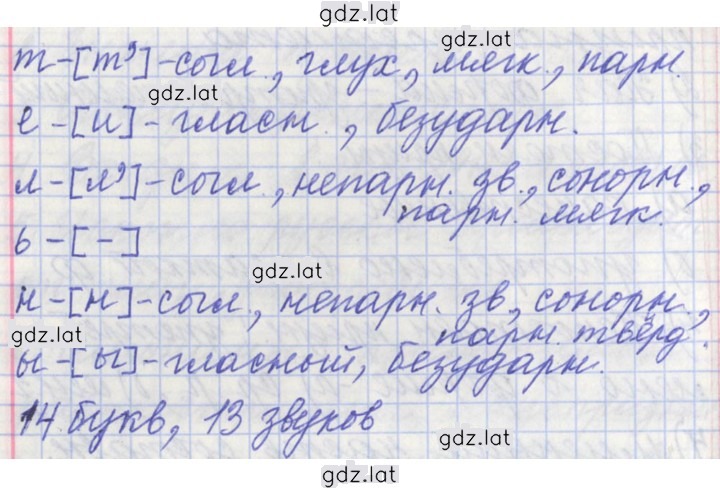 gdz.lat
т-[т']-согл., глух., мягк., парн.
gdz.lat
gdz.lat
е-[и]-гласн., безударн.
л-[л']-согл., непарн. зв., сонорн.,
парн. мягк.
ь-[-]
gdz.lat
н-[н]-согл., непарн. зв., сонорн.,
gdz.lat
парн. твёрд.
ы-[ы]-гласный, безударн.
14 букв, 13 звуков
gdz.lat
gdz.lat